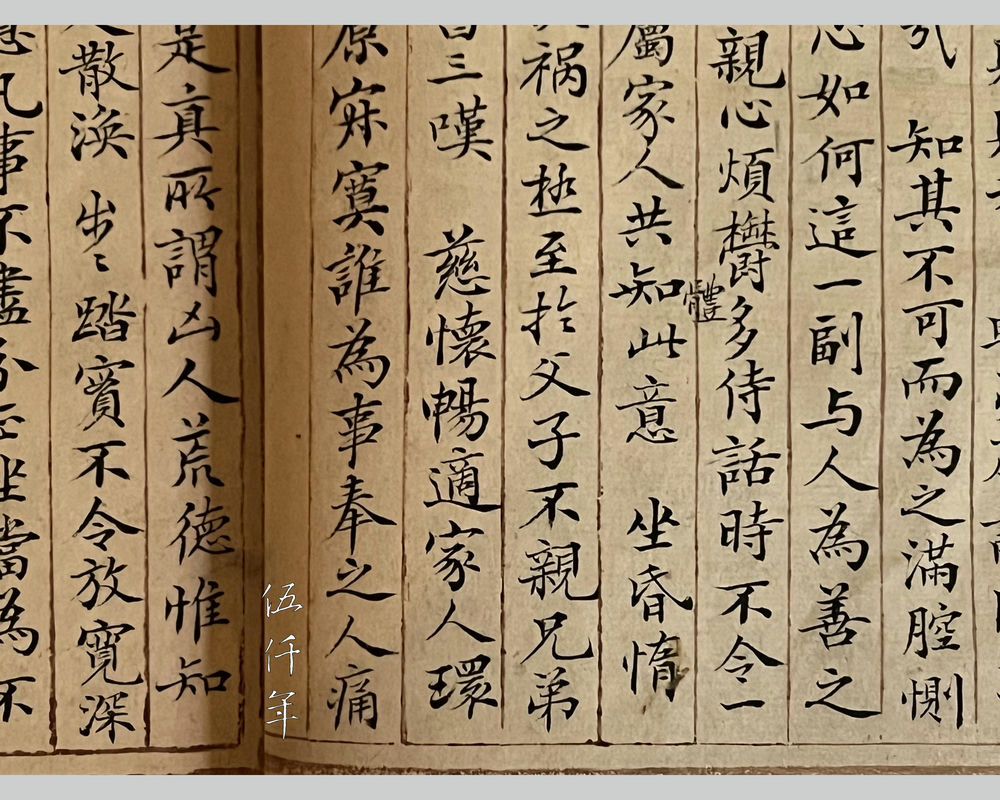 知其不可而為之滿腔惻
心如何這一副与人為善之
親心煩欝體多侍話時不令一
屬家人共知此意 坐昏惰
祸之極至扵父子不親兄弟
三嘆 慈懷暢適家人環
原寂寞誰為事奉之人痛
是真所謂凶人荒德惟知
散渙 步〻踏實不令放寬深
凡事不盡分 坐當為不
伍仟年